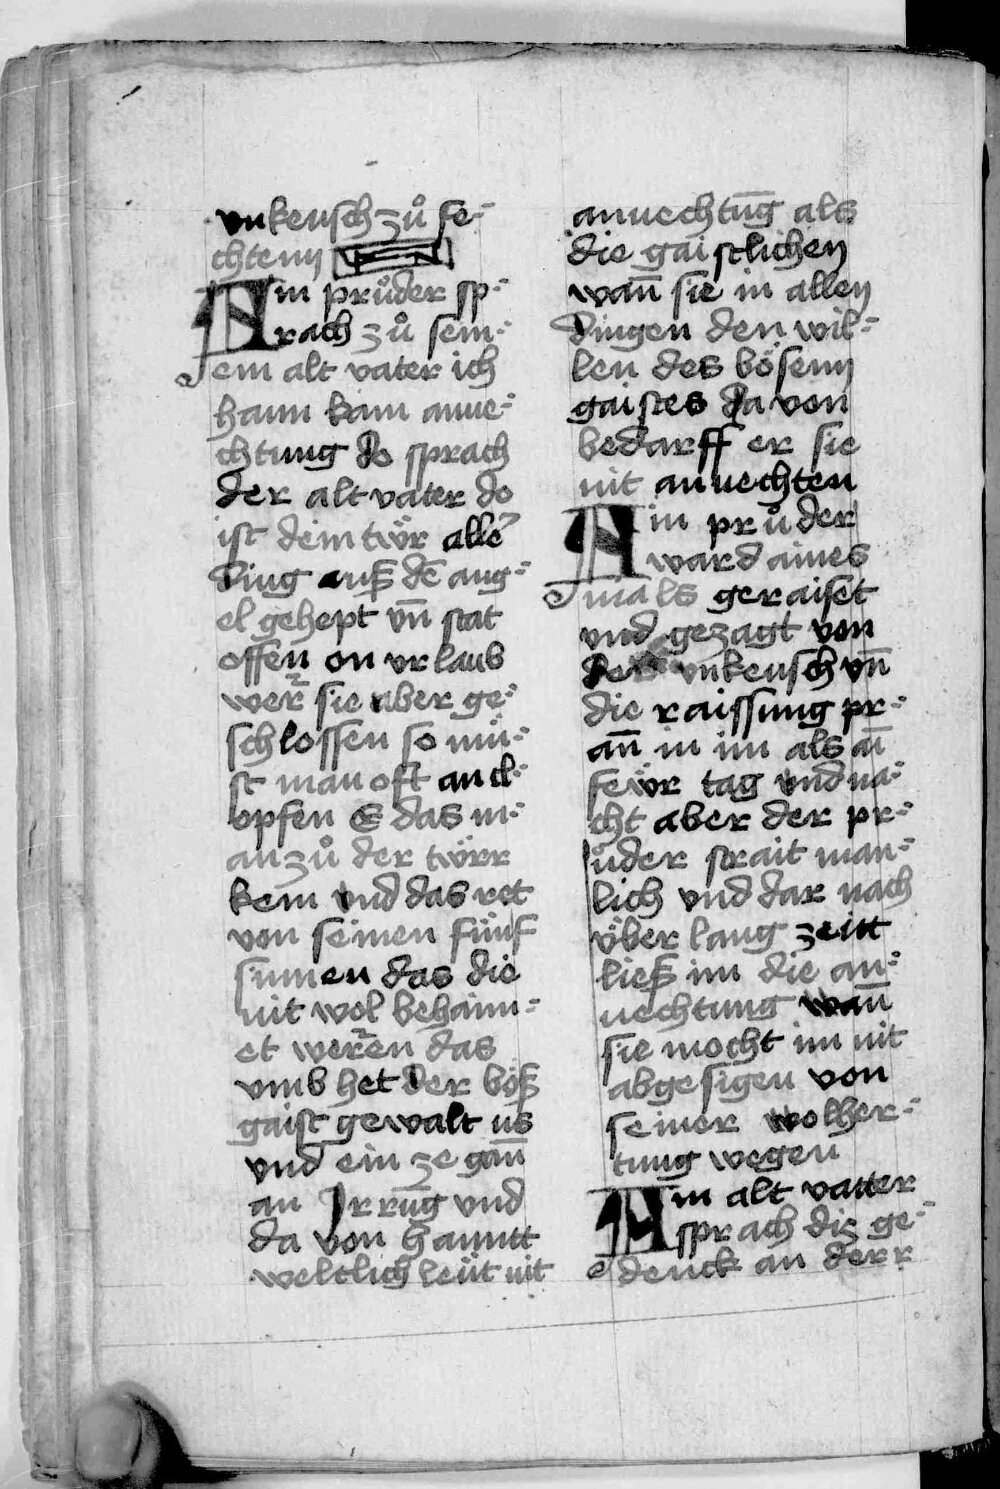 vnkeusch zuͦ fe⸗
chtenn
Ain pruͦder sp⸗
rach zuͦ sein⸗
em alt vater ich
hann kain anue⸗
chtung do sprach
der alt vater do
ist deim twör alleˀ
ding auß dē ang⸗
el gehept vn̄ stat
offen on vrlaub
wer sie aber ge⸗
schlossen so mü⸗
st man oft an cl⸗
opfen E das m⸗
an zuͦ der twörr
kem vnd das ret
von seinen fünf
sinnen das die
nit wol behann⸗
et weren das
vmb het der böß
gaist gewalt us
vnd ein ze gan̄
an Jrrūg vnd
da von hanntt
weltlich leüt nit
anuechtūg als
die gaistlichen
wan̄ sie in allen
dingen den wil⸗
len des bösenn
gaistes da von
bedarff er sie
nit anuechten
Ain pruͦder
ward aines
mals geraiset
vnd gezagt von
der vnkeusch vn̄
die raissung pr⸗
an̄ in im als ain̄
fewr tag vnd na⸗
cht aber der pr⸗
uͦder strait man⸗
lich vnd dar nach
über lang zeitt
ließ im die an⸗
uechtung wan̄
sie mocht im nit
abgesigen von
seiner wolher⸗
tung wegen
Ain alt vatter
sprach die ge⸗
denck an derr